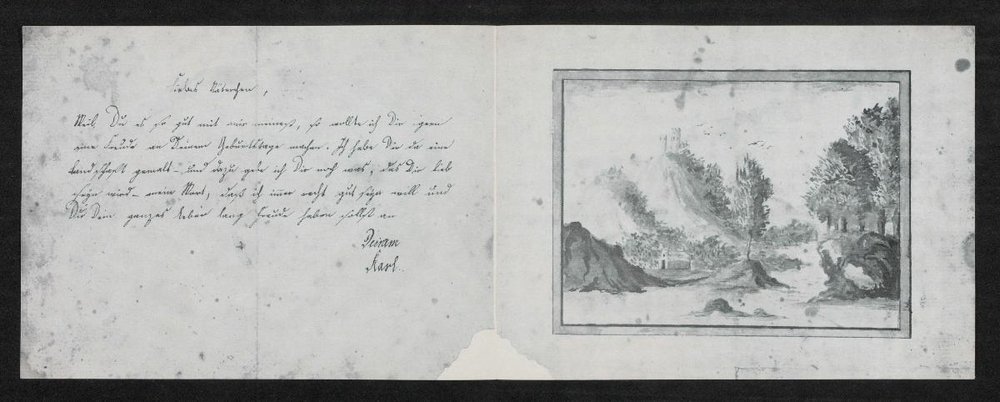 Liebes Väterchen,
Weil Du es so gut mit mir meinest, so wollte ich Dir gern
eine Freude an Deinem Geburtstage machen. Ich habe Dir da eine
Landschaft gemalt und dazu gebe ich Dir noch was, das Dir lieb
seyn wird – mein Wort, daß ich immer recht gut seyn will und
Du Dein ganzes Leben lang Freude haben sollst an
Deinem
Karl.